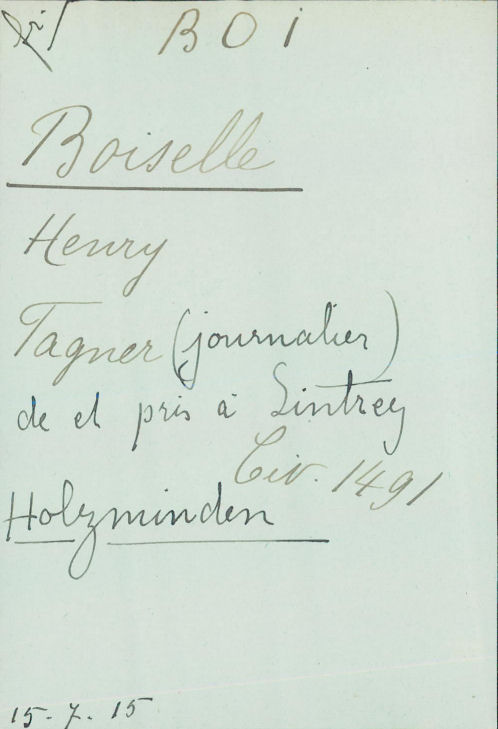 BOI
Boiselle
Henry
Tagner (journalier)
de et pris à Lintrey
Civ. 1491
Holzminden
15-7.15